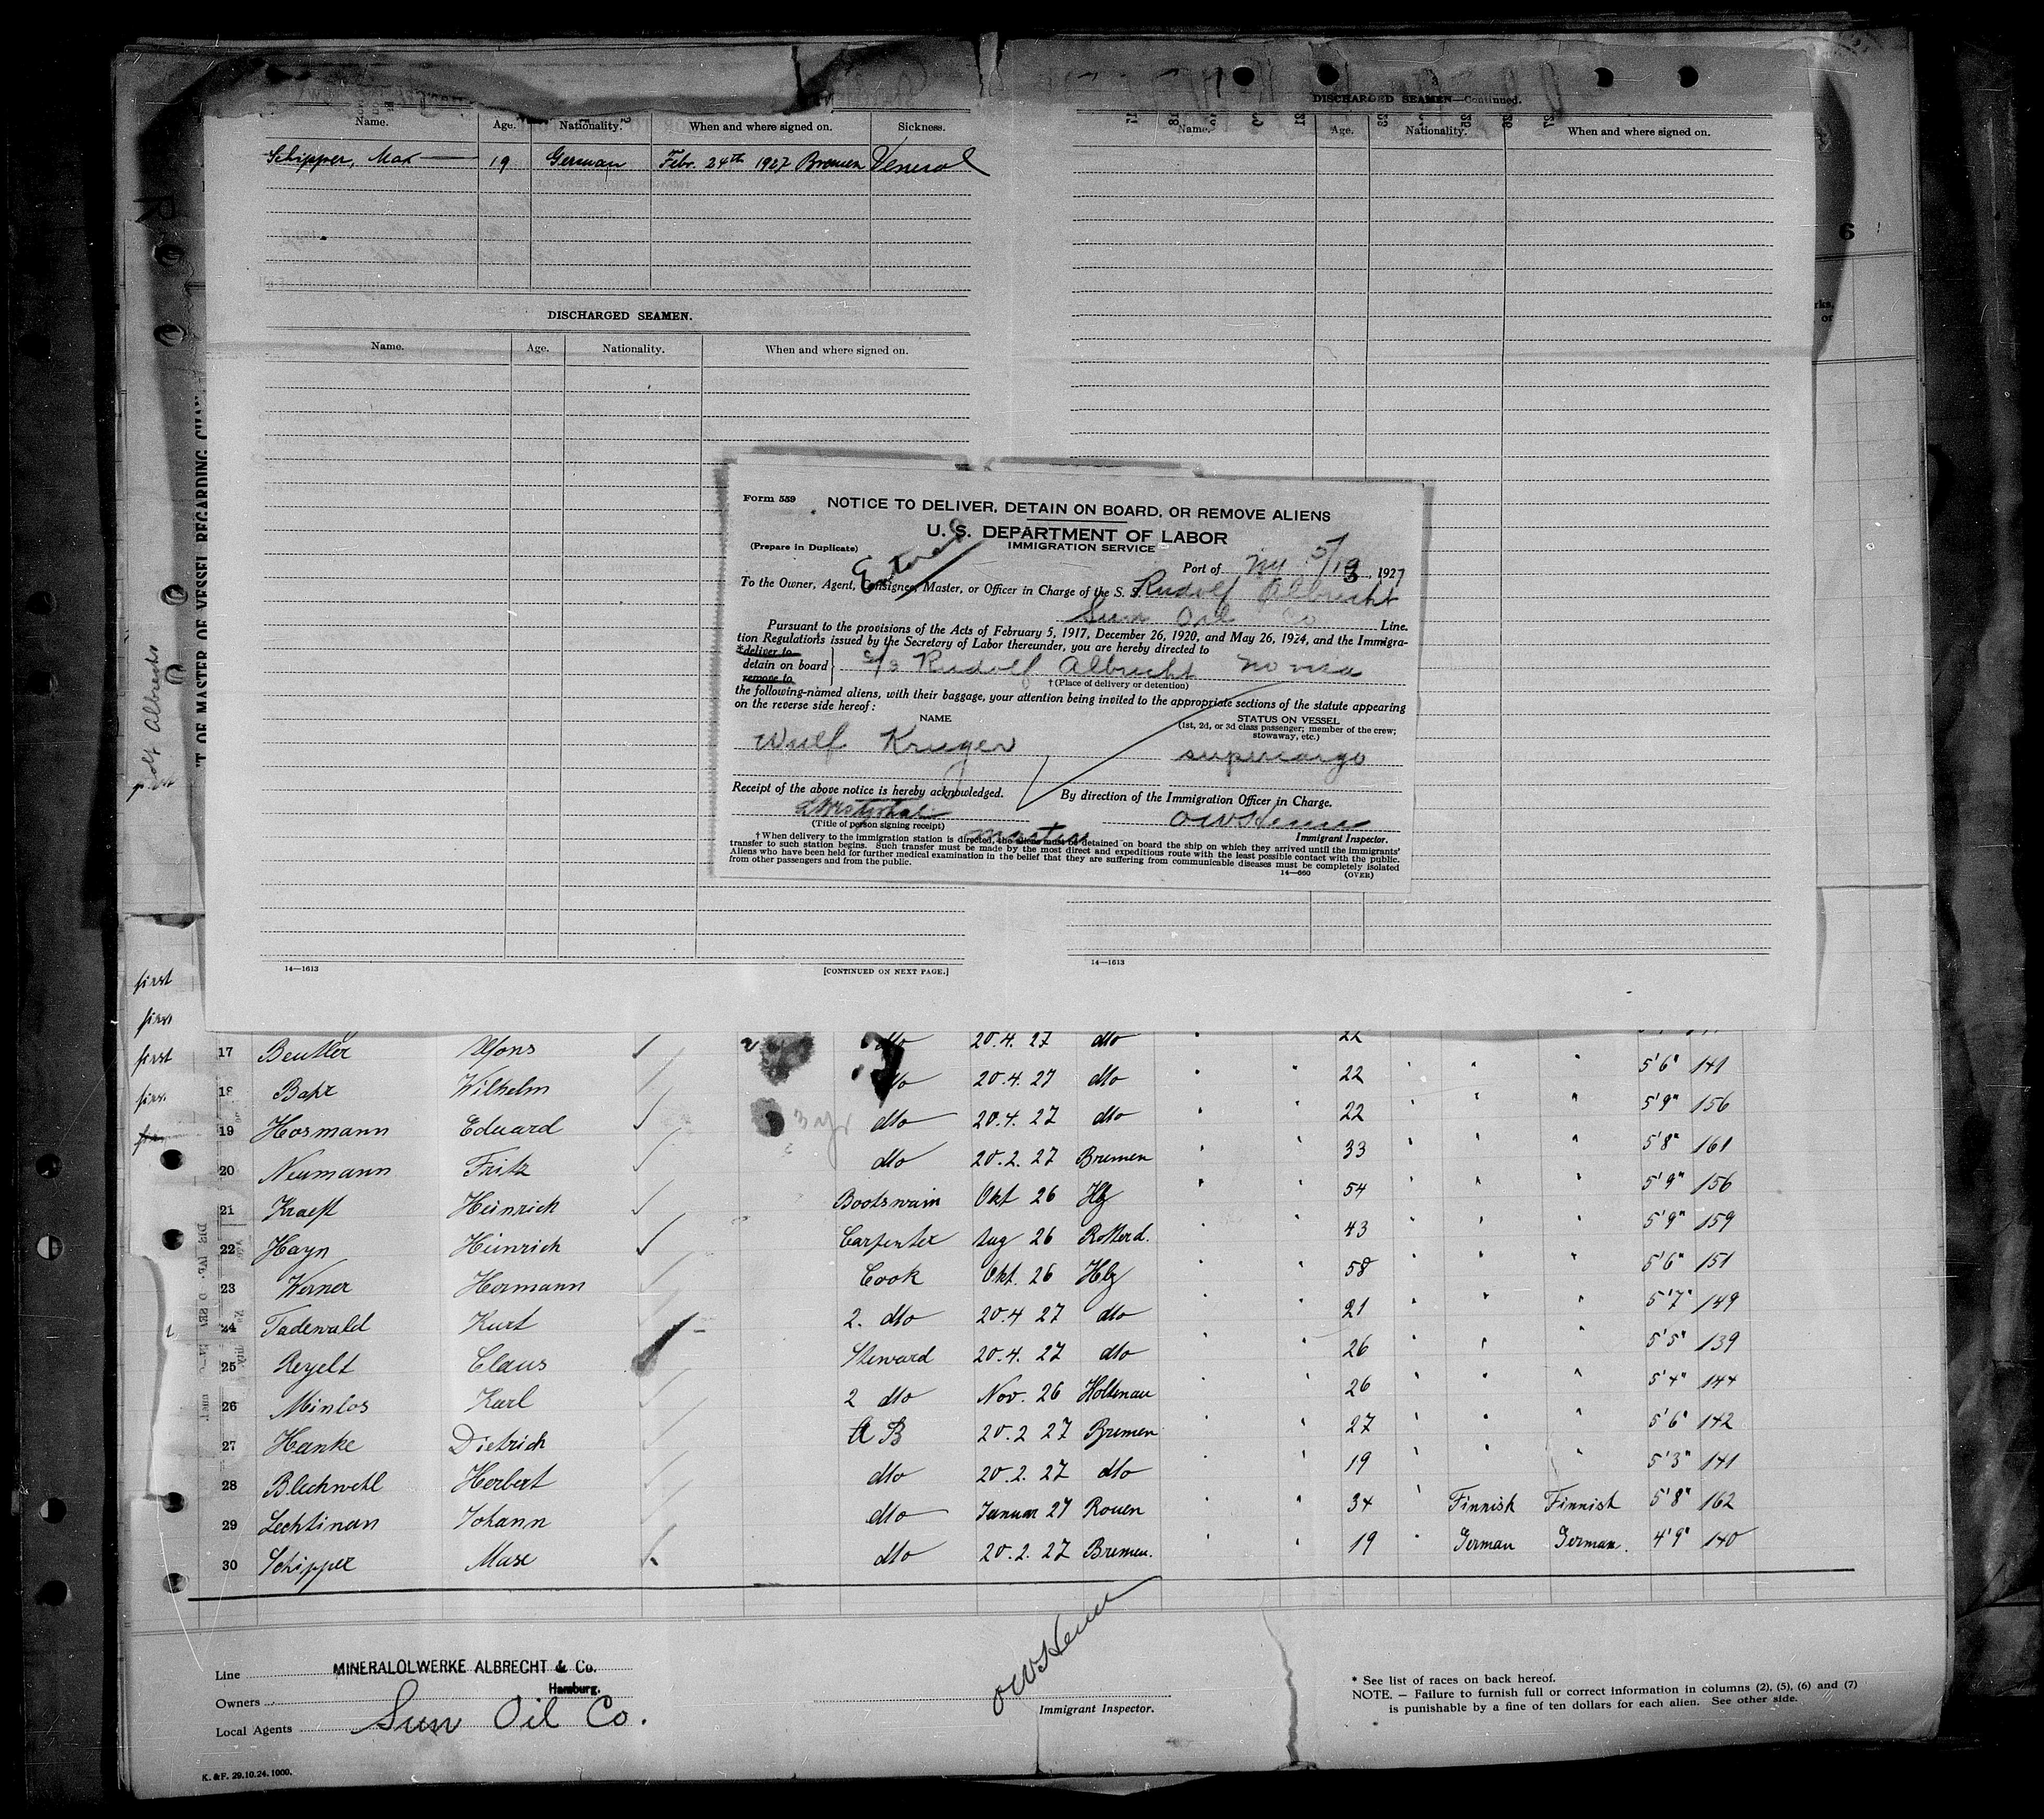 DISCHARGED SEAMEN—Continued.
Name. Age. Nationality. When and where signed on. Sickness.
Name. Age. Nationality. When and where signed on.
Schipper, Max 19 German Febr. 24th 1927 Bremen Veneral
DISCHARGED SEAMEN.
Name. Age. Nationality. When and where signed on.
Form 559
NOTICE TO DELIVER, DETAIN ON BOARD, OR REMOVE ALIENS
U. S. DEPARTMENT OF LABOR
(Prepare in Duplicate) IMMIGRATION SERVICE
Port of NY 5/19, 1927
To the Owner, Agent, Consignee, Master, or Officer in Charge of the S. S. Rudolf Albrecht
Sun Oil Co Line.
Pursuant to the provisions of the Acts of February 5, 1917, December 26, 1920, and May 26, 1924, and the Immigra-
tion Regulations issued by the Secretary of Labor thereunder, you are hereby directed to
*deliver to
detain on board s/s Rudolf Albrecht no visa
remove to † (Place of delivery or detention)
the following-named aliens, with their baggage, your attention being invited to the appropriate sections of the statute appearing
on the reverse side hereof:
NAME STATUS ON VESSEL
(1st, 2d, or 3d class passenger; member of the crew;
stowaway, etc.)
Wulf Kruger supercargo
Receipt of the above notice is hereby acknowledged. By direction of the Immigration Officer in Charge.
(Title of person signing receipt) master
Immigrant Inspector.
† When delivery to the immigration station is directed, the aliens must be detained on board the ship on which they arrived until the immigrants'
transfer to such station begins. Such transfer must be made by the most direct and expeditious route with the least possible contact with the public.
Aliens who have been held for further medical examination in the belief that they are suffering from communicable diseases must be completely isolated
from other passengers and from the public.
14—660 (OVER)
14—1613 [CONTINUED ON NEXT PAGE.]
14—1613
T OF MASTER OF VESSEL REGARDING
first
first
first
first
17 Beutler Alfons dto 20.4.27 dto 22
18 Bahr Wilhelm dto 20.4.27 dto " " 22 " " " 5'6" 141
19 Hosmann Eduard 3 yr dto 20.4.27 dto " " 22 " " " 5'9" 156
20 Neumann Fritz dto 20.2.27 Bremen " " 33 " " " 5'8" 161
21 Kraeft Heinrich Bootswain Okt 26 Hbg " " 54 " " " 5'9" 156
22 Hayn Heinrich Carpenter Aug 26 Rotterd. " " 43 " " " 5'9" 159
23 Werner Hermann Cook Okt. 26 Hbg " " 58 " " " 5'6" 151
24 Tadewald Kurt 2. dto 20.4 27 dto " " 21 " " " 5'7" 149
25 Reyelt Claus Steward 20.4.27 dto " " 26 " " " 5'5" 139
26 Minlos Karl 2 dto Nov. 26 Holtenau " " 26 " " " 5'4" 144
27 Hanke Dietrich A B 20.2 27 Bremen " " 27 " " " 5'6" 142
28 Blechwehl Herbert dto 20.2.27 dto " " 19 " " " 5'3" 141
29 Lechtinan Johann dto Januar 27 Rouen " " 34 " Finnish Finnish 5'8" 162
30 Schipper Max dto 20.2.27 Bremen. " " 19 " German German. 4'9" 140
Line MINERALOLWERKE ALBRECHT & Co.
Hamburg.
Owners
Local Agents Sun Oil Co.
Immigrant Inspector.
* See list of races on back hereof.
NOTE. — Failure to furnish full or correct information in columns (2), (5), (6) and (7)
is punishable by a fine of ten dollars for each alien. See other side.
K. & F. 29.10.24.1000.